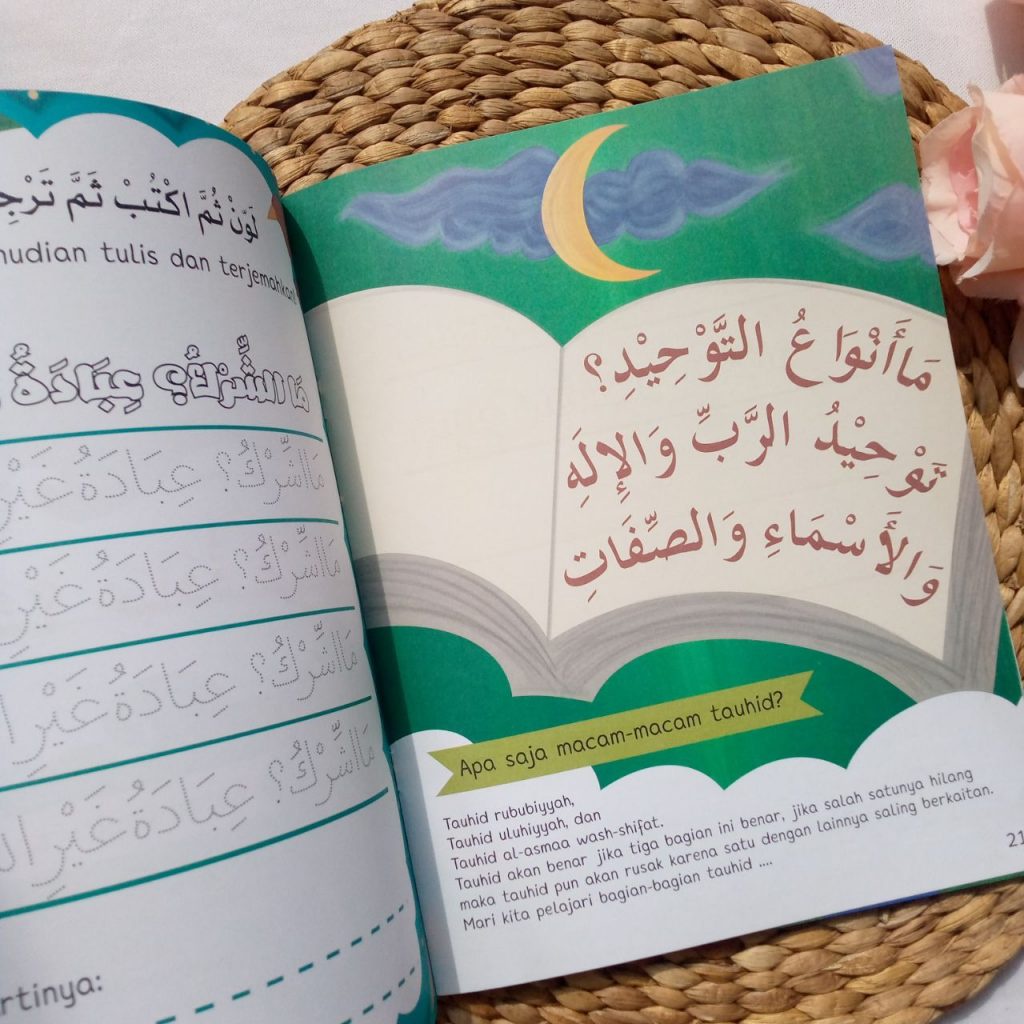 لَوِّنْ ثُمَّ اكْتُبْ ثَمَّ
tulis dan terjemahkan!
مَا الشِّرْكُ؟ عِبَادَةُ
مَا اشِّرْكُ؟ عِبَادَةُ غَيْرِ
مَا اشِّرْكُ؟ عِبَادَةُ غَيْرِ
مَا اشِّرْكُ؟ عِبَادَةُ غَيْرِ
مَا اشِّرْكُ؟ عِبَادَةُ غَيْرِ
مَا أَنْوَاعُ التَّوْحِيْدِ؟
تَوْحِيْدُ الرَّبِّ وَالإِلَهِ
وَالأَسْمَاءِ وَالصِّفَاتِ
Apa saja macam-macam tauhid?
Tauhid rububiyyah,
Tauhid uluhiyyah, dan
Tauhid al-asmaa wash-shifat.
Tauhid akan benar jika tiga bagian ini benar, jika salah satunya hilang
maka tauhid pun akan rusak karena satu dengan lainnya saling berkaitan.
Mari kita pelajari bagian-bagian tauhid ....
21